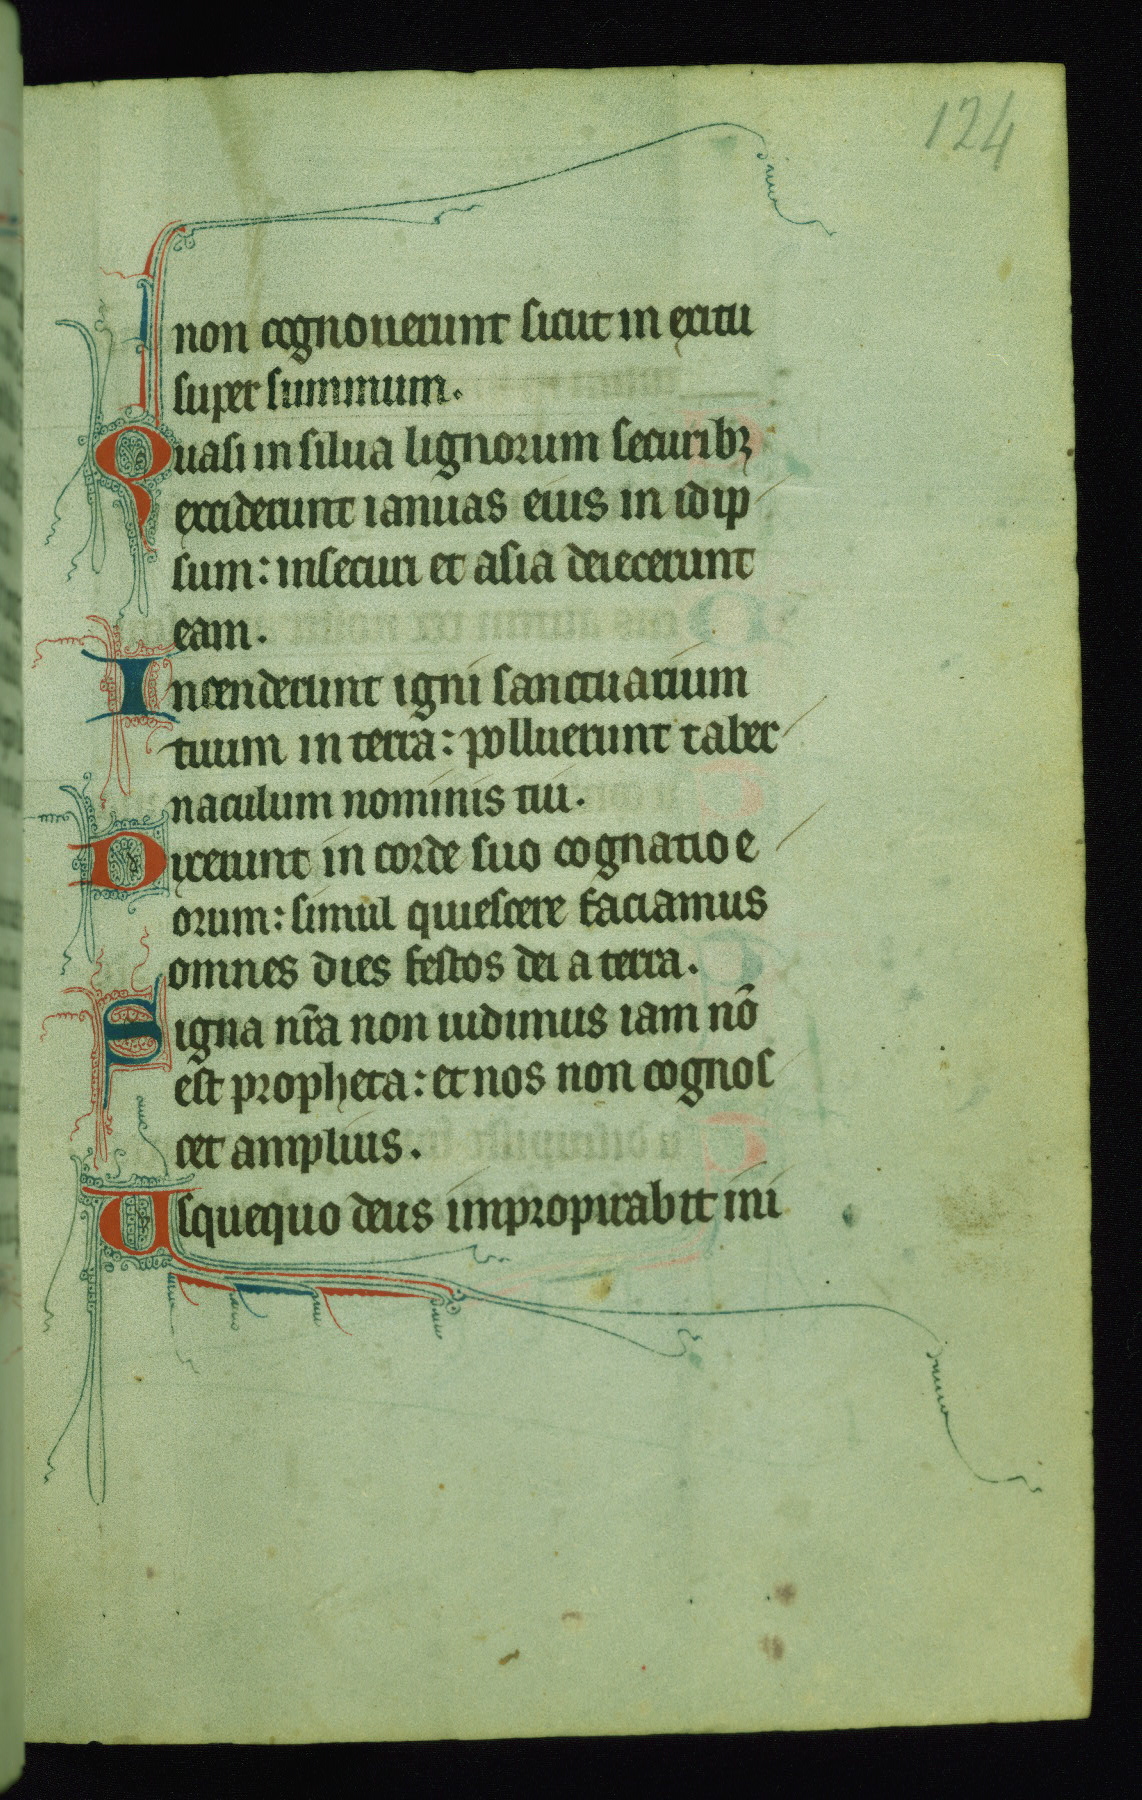 124
non cognouerunt sicut in exitu
super summum.
Quasi in silua lignorum securibꝫ
exciderunt ianuas eius in idip
sum: in securi et asia deiecerunt
eam.
Incenderunt igni sanctuarium
tuum in terra: polluerunt taber
naculum nominis tui.
Dixerunt in corde suo cognatio e
orum: simul quiescere faciamus
omnes dies festos dei a terra.
Signa nr̄a non uidimus iam nō
est propheta: et nos non cognos
cet amplius.
Usquequo deus impropirabit ini